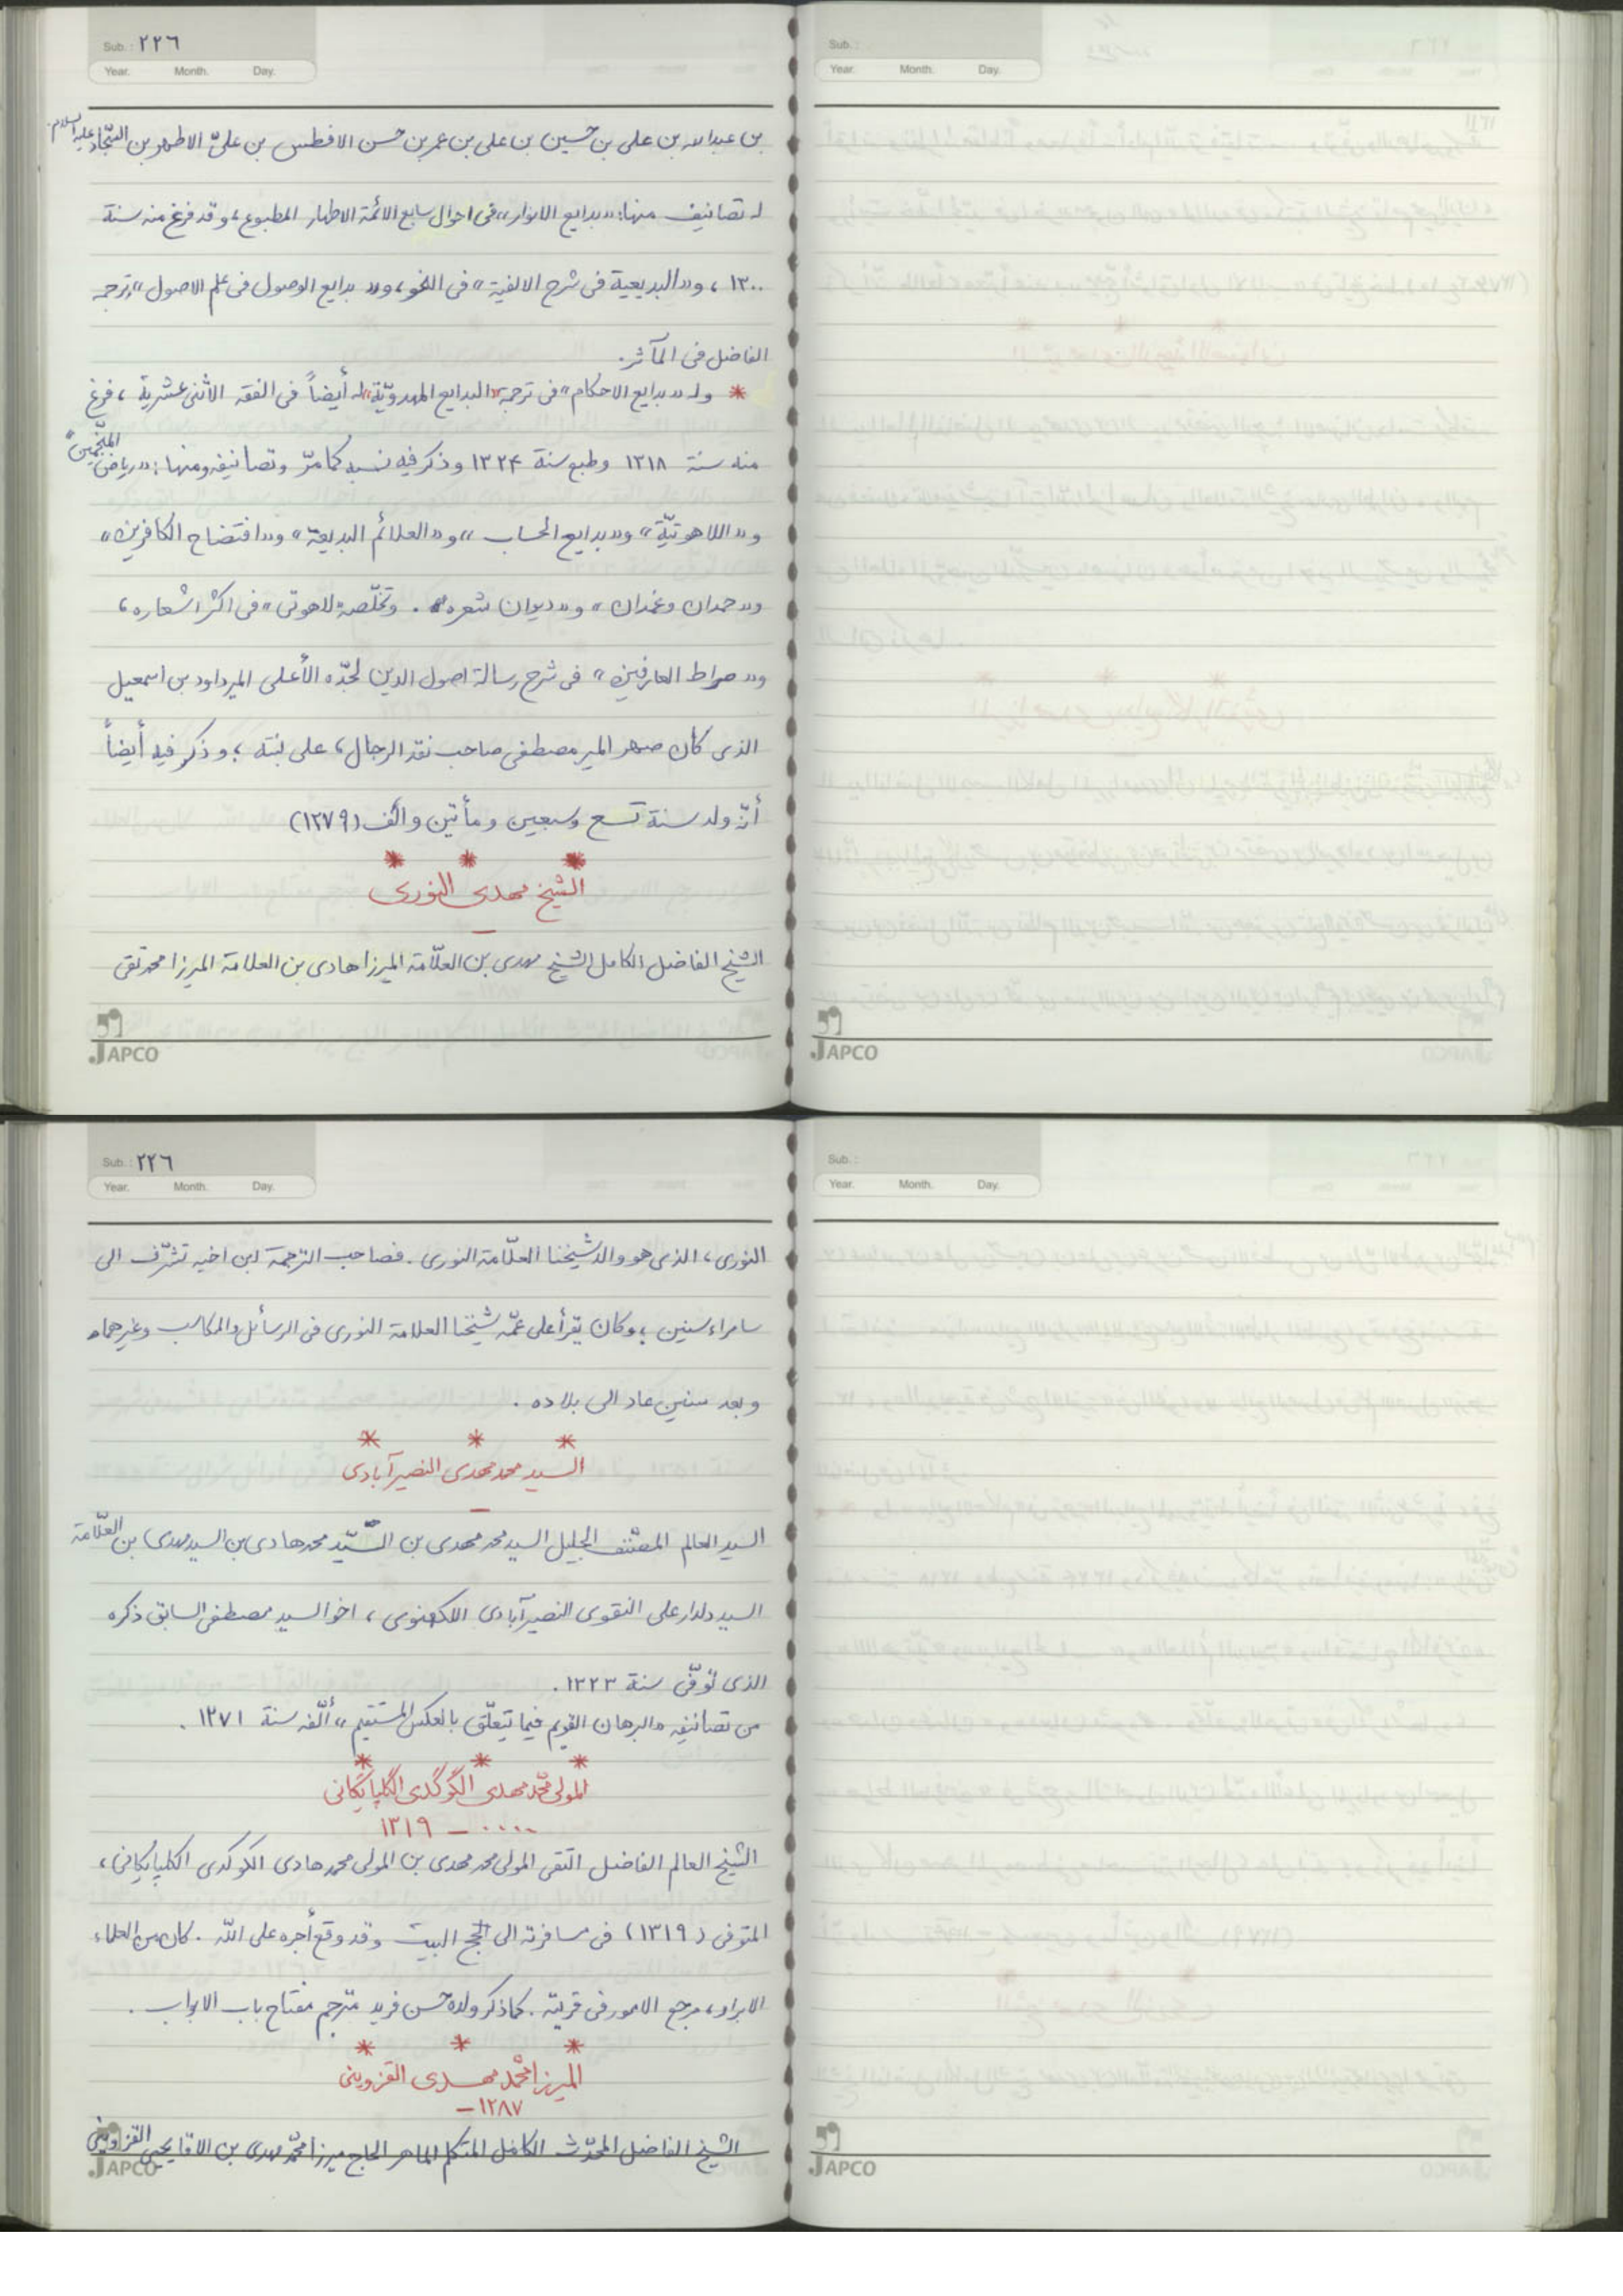 Sub. : ٢٢٦
Year. Month. Day.
بن عبدالله بن على بن حسين بن على بن عمر بن حسن الافطس بن علىّ الاطهر بن السّجّاد عليه السلام.
له تصانيف منها: «بدايع الانوار» فى احوال سابع الائمة الاطهار المطبوع، وقد فرغ منه سنة
١٣٠٠، و«البديعية فى شرح الالفية» فى النحو، و« بدايع الوصول فى علم الاصول» ترجمه
الفاضل فى المآثر.
* وله «بدايع الاحكام» فى ترجمة «البدايع المهدويّة» له أيضاً فى الفقه الاثنى عشرية، فرغ
منه سنة ١٣١٨ وطبع سنة ١٣٢۴ وذكر فيه نسبه كما مرّ وتصانيفه ومنها: «رياض المنجّمين»
و«اللاهوتيّة» و«بدايع الحساب» و«العلائم البديعة» و«افتضاح الكافرين»
و«حمدان وغمدان» و«ديوان شعره». وتخلّصه «لاهوتى» فى اكثر اشعاره،
و« صراط العارفين» فى شرح رسالة اصول الدين لجدّه الأعلى المير داود بن اسمعيل
الذى كان صهر المير مصطفى صاحب نقد الرجال، على بنته؛ وذكر فيه أيضاً
أنّه ولد سنة تسع وسبعين ومأتين وألف (١٢٧٩)
* * *
الشيخ مهدى النورى
–
الشيخ الفاضل الكامل الشيخ مهدى بن العلّامة الميرزا هادى بن العلامة الميرزا محمد تقى
JAPCO
Sub. :
Year. Month. Day.
JAPCO
Sub. : ٢٢٦
Year. Month. Day.
النورى، الذى هو والد شيخنا العلّامة النورى. فصاحب الترجمة ابن اخيه تشرّف الى
سامراء سنين؛ وكان يقرأ على عمّه شيخنا العلامة النورى فى الرسائل والمكاسب وغيرهما،
وبعد سنين عاد الى بلاده.
* * *
السيد محمد مهدى النصيرآبادى
–
السيد العالم المصنّف الجليل السيد محمد مهدى بن السّيّد محمد هادى بن السيد مهدى بن العلّامة
السيد دلدار على النقوى النصيرآبادى اللكهنوى، اخو السيد مصطفى السابق ذكره
الذى توفّى سنة ١٣٢٣.
من تصانيفه «البرهان القويم فيما يتعلّق بالعكس المستقيم» ألّفه سنة ١٢٧١.
* * *
المولى محمّد مهدى الگوگدى الگلپايگانى
.... – ١٣١٩
الشيخ العالم الفاضل التقى المولى محمد مهدى بن المولى محمد هادى الكوكدى الكلپايكانى،
المتوفى (١٣١٩) فى مسافرته الى الحج البيت وقد وقع أجره على اللّه. كان من العلماء
الابرار، مرجع الامور فى قريته. كما ذكر ولده حسن فريد مترجم مفتاح باب الابواب.
* * *
الميرزا محمّد مهدى القزوينى
١٢٨٧–
الشيخ الفاضل المحدّث الكامل المتكلم الماهر الحاج ميرزا محمّد مهدى بن الاقا يحيى القزوينى
JAPCO
Sub. :
Year. Month. Day.
JAPCO